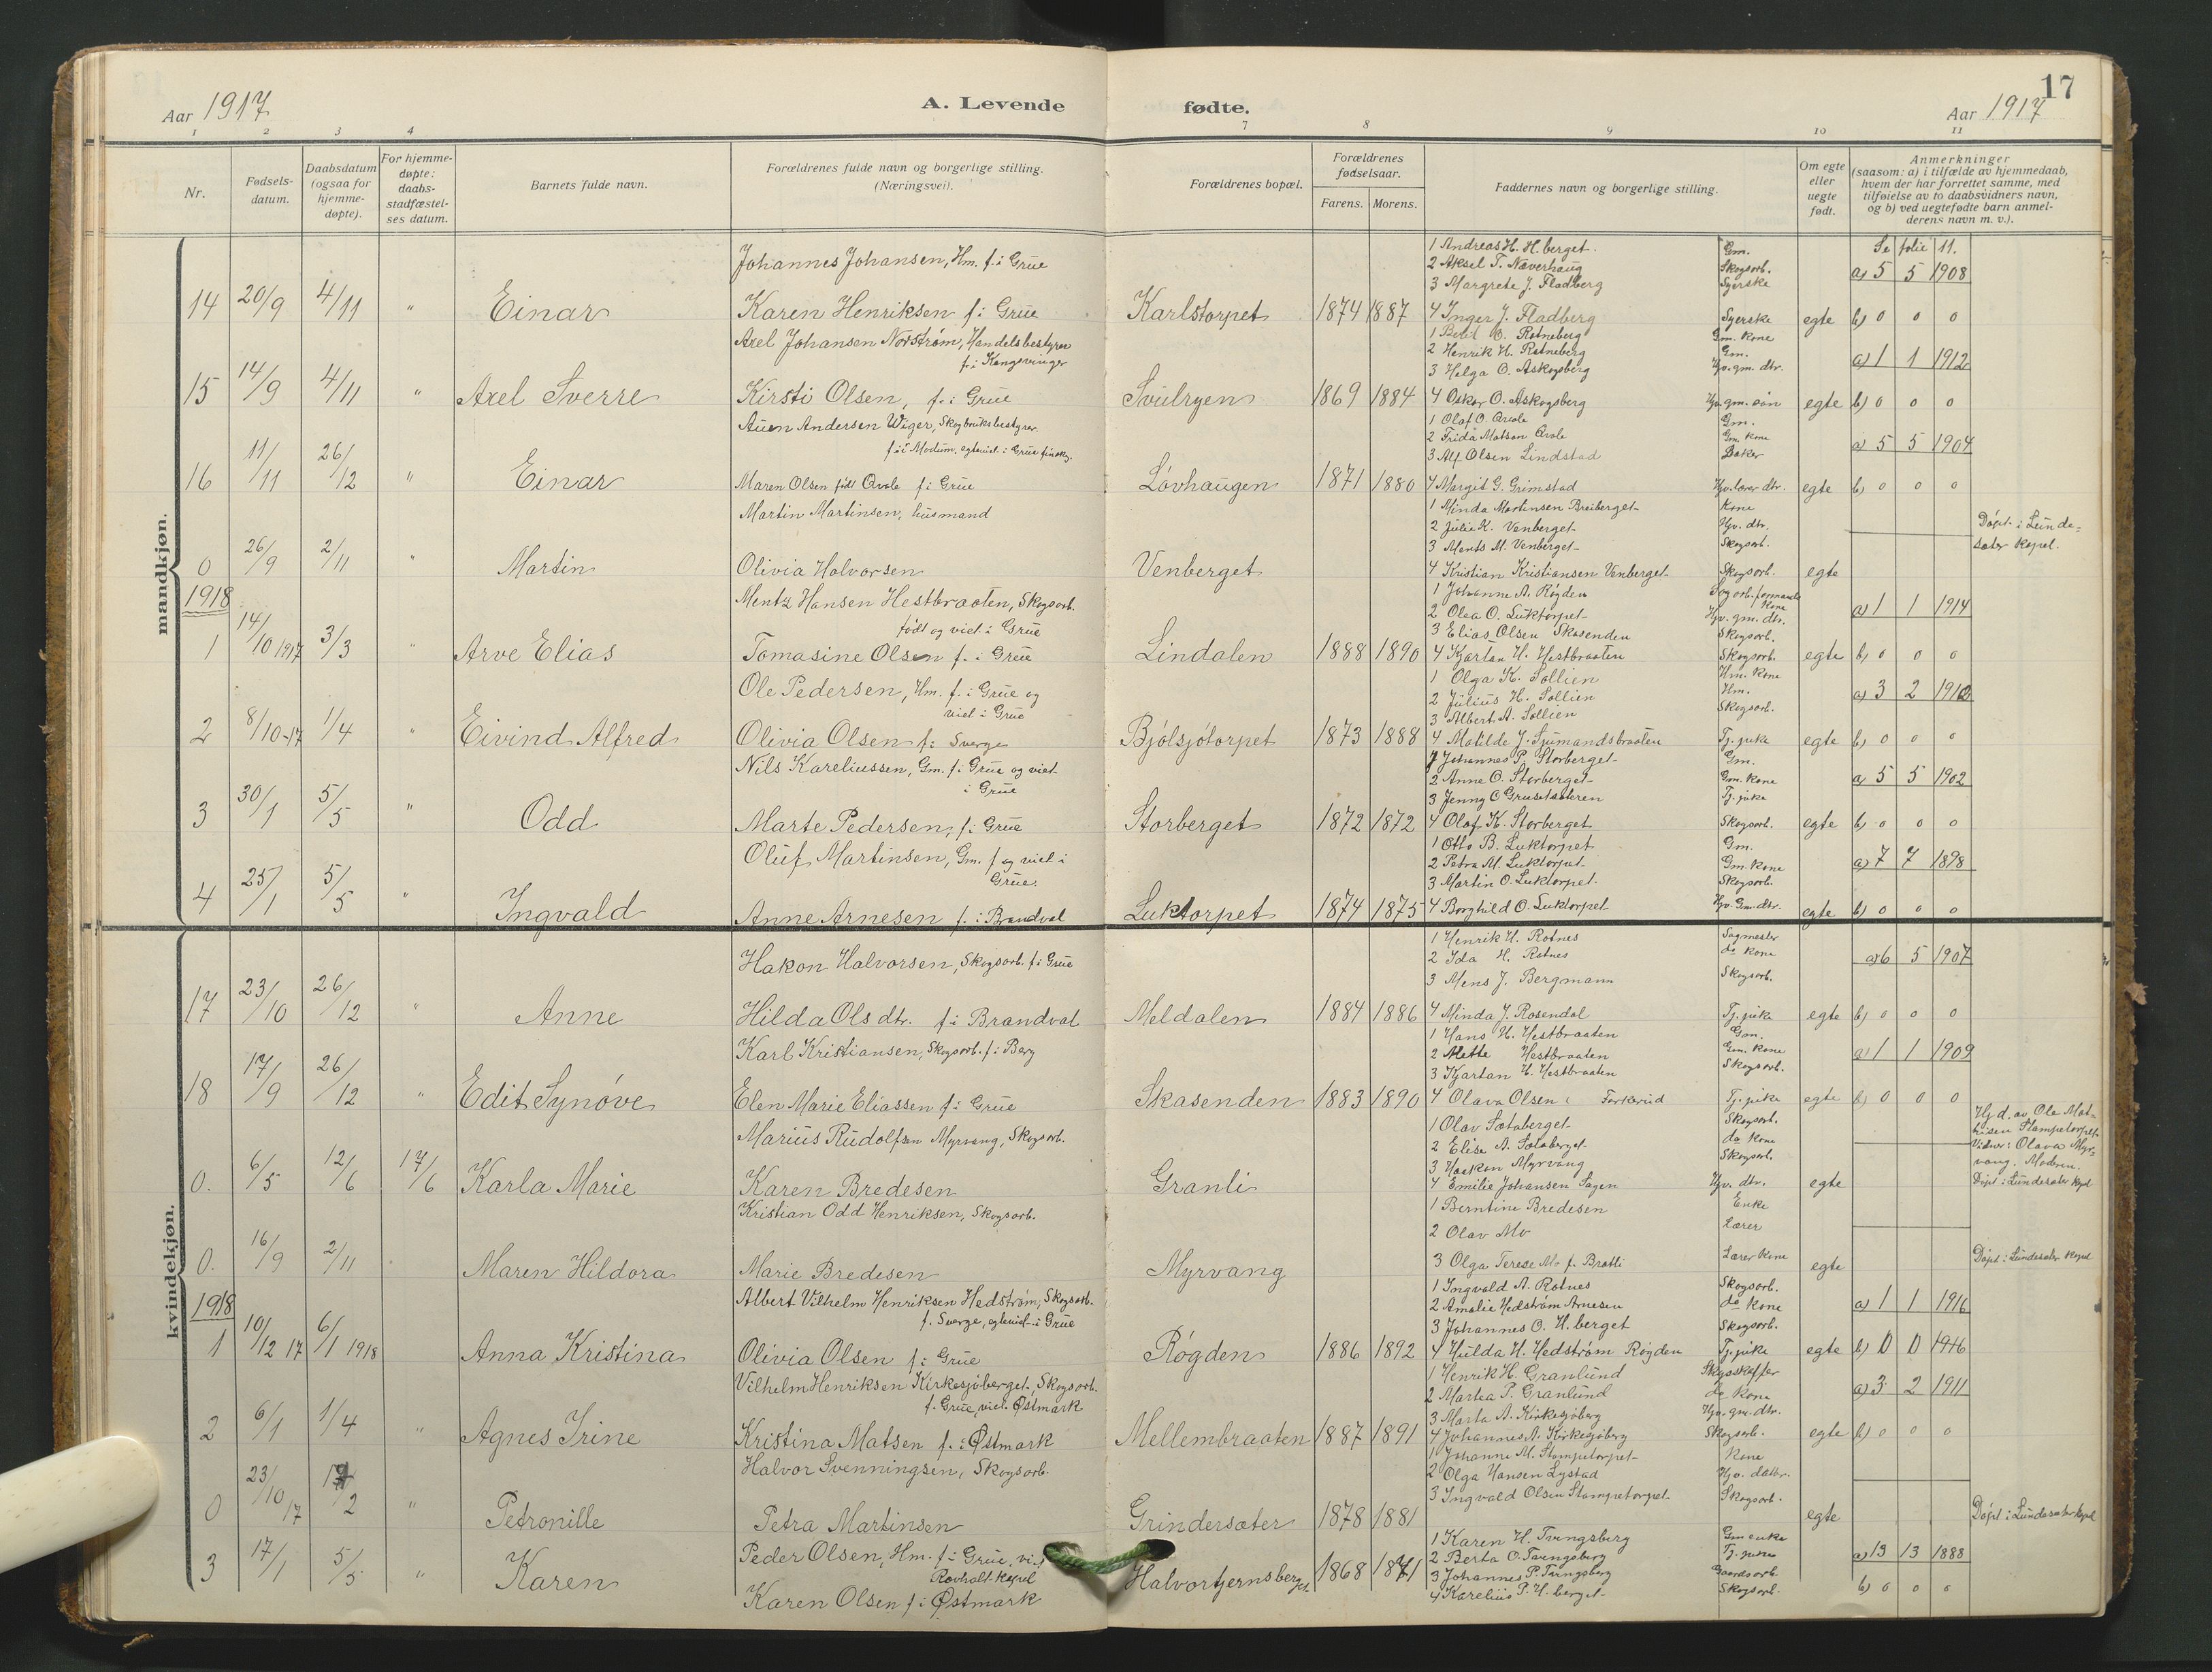 17
Aar 1917
A. Levende fødte.
Aar 1917
1 2 3 4 7 8 9 10 11
Nr.
Fødsels-
datum.
Daabsdatum
(ogsaa for
hjemme-
døpte).
For hjemme-
døpte:
daabs-
stadfæstel-
ses datum.
Barnets fulde navn.
Forældrenes fulde navn og borgerlige stilling.
(Næringsvei).
Forældrenes bopæl.
Forældrenes
fødselsaar.
Farens. Morens.
Faddernes navn og borgerlige stilling.
Om egte
eller
uegte
født.
Anmerkninger
(saasom: a) i tilfælde av hjemmedaab,
hvem der har forrettet samme, med
tilføielse av to daabsvidners navn,
og b) ved uegtefødte barn anmel-
derens navn m. v.).
mandkjøn.
Se folie 11.
Johannes Johansen, Hm. f. i Grue
1 Andreas H. H.berget. Gm.
2 Aksel T. Næverhaug Skogsarb.
3 Margrete J. Fladberg Syerske
a) 5 5 1908
14 20/9 4/11 " Einar Karen Henriksen f. i Grue Karlstorpet 1874 1887 4 Inger J. Fladberg Syerske egte b) 0 0 0
Axel Johansen Norstrøm, Handelsbestyrer
f. i Kongsvinger
1 Berit O. Rotneberg Gm. kone
2 Henrik H. Rotneberg Gm.
3 Helga O. Askogsberg Hjv. gm. dtr.
a) 1 1 1912
15 14/9 4/11 " Axel Sverre Kirsti Olsen, f. i Grue Svulryen 1869 1884 4 Oskar O. Askogsberg Hjv. gm. søn egte b) 0 0 0
Auen Andersen Wiger, Skogbruksbestyrer.
f. i Modum, egteviet i Grue finskog.
1 Olaf O. Qvale Gm.
2 Frida Matson Qvale Gm. kone
3 Alf Olsen Lindstad Baker
a) 5 5 1904
16 11/11 26/12 " Einar Maren Olsen født Qvale f. i Grue Løvhaugen 1871 1880 4 Margit G. Grimstad Hjv. lærer dtr. egte b) 0 0 0
Martin Martinsen, husmand
1 Minda Martinsen Breiberget Kone
2 Julie K. Venberget Hjv. dtr.
3 Ments M. Venberget Skogsarb.
Døpt i Lunde-
sæter kapel.
0 26/9 2/11 " Martin Olivia Halvorsen Venberget 4 Kristian Kristiansen Venberget Skogsarb. egte
1918
Mentz Hansen Hestbraaten, Skogsarb.
født og viet i Grue
1 Johanne A. Røgden kone
2 Olea O. Luktorpet Hjv. gm. dtr.
3 Elias Olsen Skasenden Skogsarb.
a) 1 1 1914
1 14/10 1917 3/3 " Arve Elias Tomasine Olsen f. i Grue Lindalen 1888 1890 4 Kjartan H. Hestbraaten Skogsarb. egte b) 0 0 0
Ole Pedersen, Hm. f. i Grue og
viet i Grue
1 Olga K. Sollien Hm. kone
2 Julius H. Sollien Hm.
3 Albert A. Sollien Skogsarb.
a) 3 2
2 8/10-17 1/4 " Eivind Alfred Olivia Olsen f. i Sverge Bjølsjøtorpet 1873 1888 4 Matilde J. Sjumandsbraaten Tj. pike egte b) 0 0 0
Nils Kareliussen, Gm. f. i Grue og viet
i Grue
1 Johannes P. Storberget Gm.
2 Anne O. Storberget Gm. kone
3 Jenny O Tj. pike
a) 5 5 1902
3 30/1 5/5 " Odd Marte Pedersen, f. i Grue Storberget 1872 1872 4 Olaf K. Storberget Skogsarb. egte b) 0 0 0
Oluf Martinsen, Gm. f. og viet i
Grue.
1 Otto B. Luktorpet Gm.
2 Petra M. Luktorpet Gm. kone
3 Martin O. Luktorpet. Skogsarb.
a) 7 7 1898
4 25/1 5/5 " Ingvald Anne Arnesen f. i Brandval Luktorpet 1874 1875 4 Borghild O. Luktorpet Hjv. Gm. dtr. egte b) 0 0 0
kvindekjøn.
Hakon Halvorsen, Skogsarb. f. i Grue
1 Henrik H. Rotnes Sagmester
2 Ida H. Rotnes do kone
3 Mens J. Bergmann Skogsarb.
a) 6 5 1907
17 23/10 26/12 " Anne Hilda Ols dtr. f. i Brandval Meldalen 1884 1886 4 Minda J. Rosendal Tj. pike egte b) 0 0 0
Karl Kristiansen, Skogsarb. f. i Berg
1 Hans H. Hestbraaten Gm.
2 Mette Hestbraaten Gm. kone
3 Kjartan H. Hestbraaten Skogsarb.
a) 1 1 1909
18 17/9 26/12 " Edit Synøve Elen Marie Eliassen f. i Grue Skasenden 1883 1890 4 Olava Olsen Torkerud Tj. pike egte b) 0 0 0
Marius Rudolfsen Myrvang, Skogsarb.
1 Olav Sætaberget Skogsarb.
2 Elise A. Sætaberget do kone
3 Haakon Myrvang Skogsarb.
Hj. d. av Ole Mat-
hisen Stampetorpet
Vidner: Olava Myr-
vang. Moderen.
Døpt i Lundesæter Kapel
0. 6/5 12/6 17/6 Karla Marie Karen Bredesen Granli 4 Emilie Johansen Sagen Hjv. dtr. egte
Kristian Odd Henriksen, Skogsarb.
1 Berntine Bredesen Enke
2 Olav Mo Lærer
0. 16/9 2/11 Maren Hildora Marie Bredesen Myrvang 3 Olga Terese Mo f. Bratli Lærer kone egte Døpt i Lundesæter kapel
1918
Albert Vilhelm Henriksen Hedstrøm, Skogsarb.
f. Sverge, egteviet i Grue
1 Ingvald A. Rotnes Skogsarb.
2 Amalie Hedstrøm Arnesen do kone
3 Johannes O. H.berget Skogsarb.
a) 1 1 1916
1 10/12 17 6/1 1918 Anna Kristina Olivia Olsen f. i Grue Røgden 1886 1892 4 Hulda H. Hedstrøm Røgden Tj. pike egte b) 0 0 1916
Vilhelm Henriksen Kirkesjøberget, Skogsarb.
f. Grue, viet. Østmark
1 Henrik H. Granlund Skysskaffer
2 Martea P. Granlund do kone
3 Marta A. Kirkesjøberg Hjv. gm. dtr.
a) 3 2 1911
2 6/1 1/4 " Agnes Irine Kristina Matsen f. i Østmark Mellembraaten 1887 1891 4 Johannes A. Kirkesjøberg Skogsarb. egte b) 0 0 0
Halvor Svenningsen, Skogsarb.
1 Johanne M. Stampetorpet Kone
2 Olga Hansen Lystad Hjv. datter.
3 Ingvald Olsen Stampetorpet Skogsarb.
0 23/10 17 " Petronille Petra Martinsen Grindersæter 1878 1881 egte Døpt i Lundesæter kapel
Peder Olsen, Hm. f. i Grue, viet
Rovhalt kapel
1 Karen H. Tvingsberg Gm enke
2 Berta O. Tvingsberg Tj. pike
3 Johannes P. Tvingsberg Gaardsarb.
a) 13 13 1888
3 17/1 5/5 " Karen Karen Olsen f. i Østmark Halvortjernsberget. 1868 1871 4 Karelius P. H.berget Skogsarb. b) 0 0 0